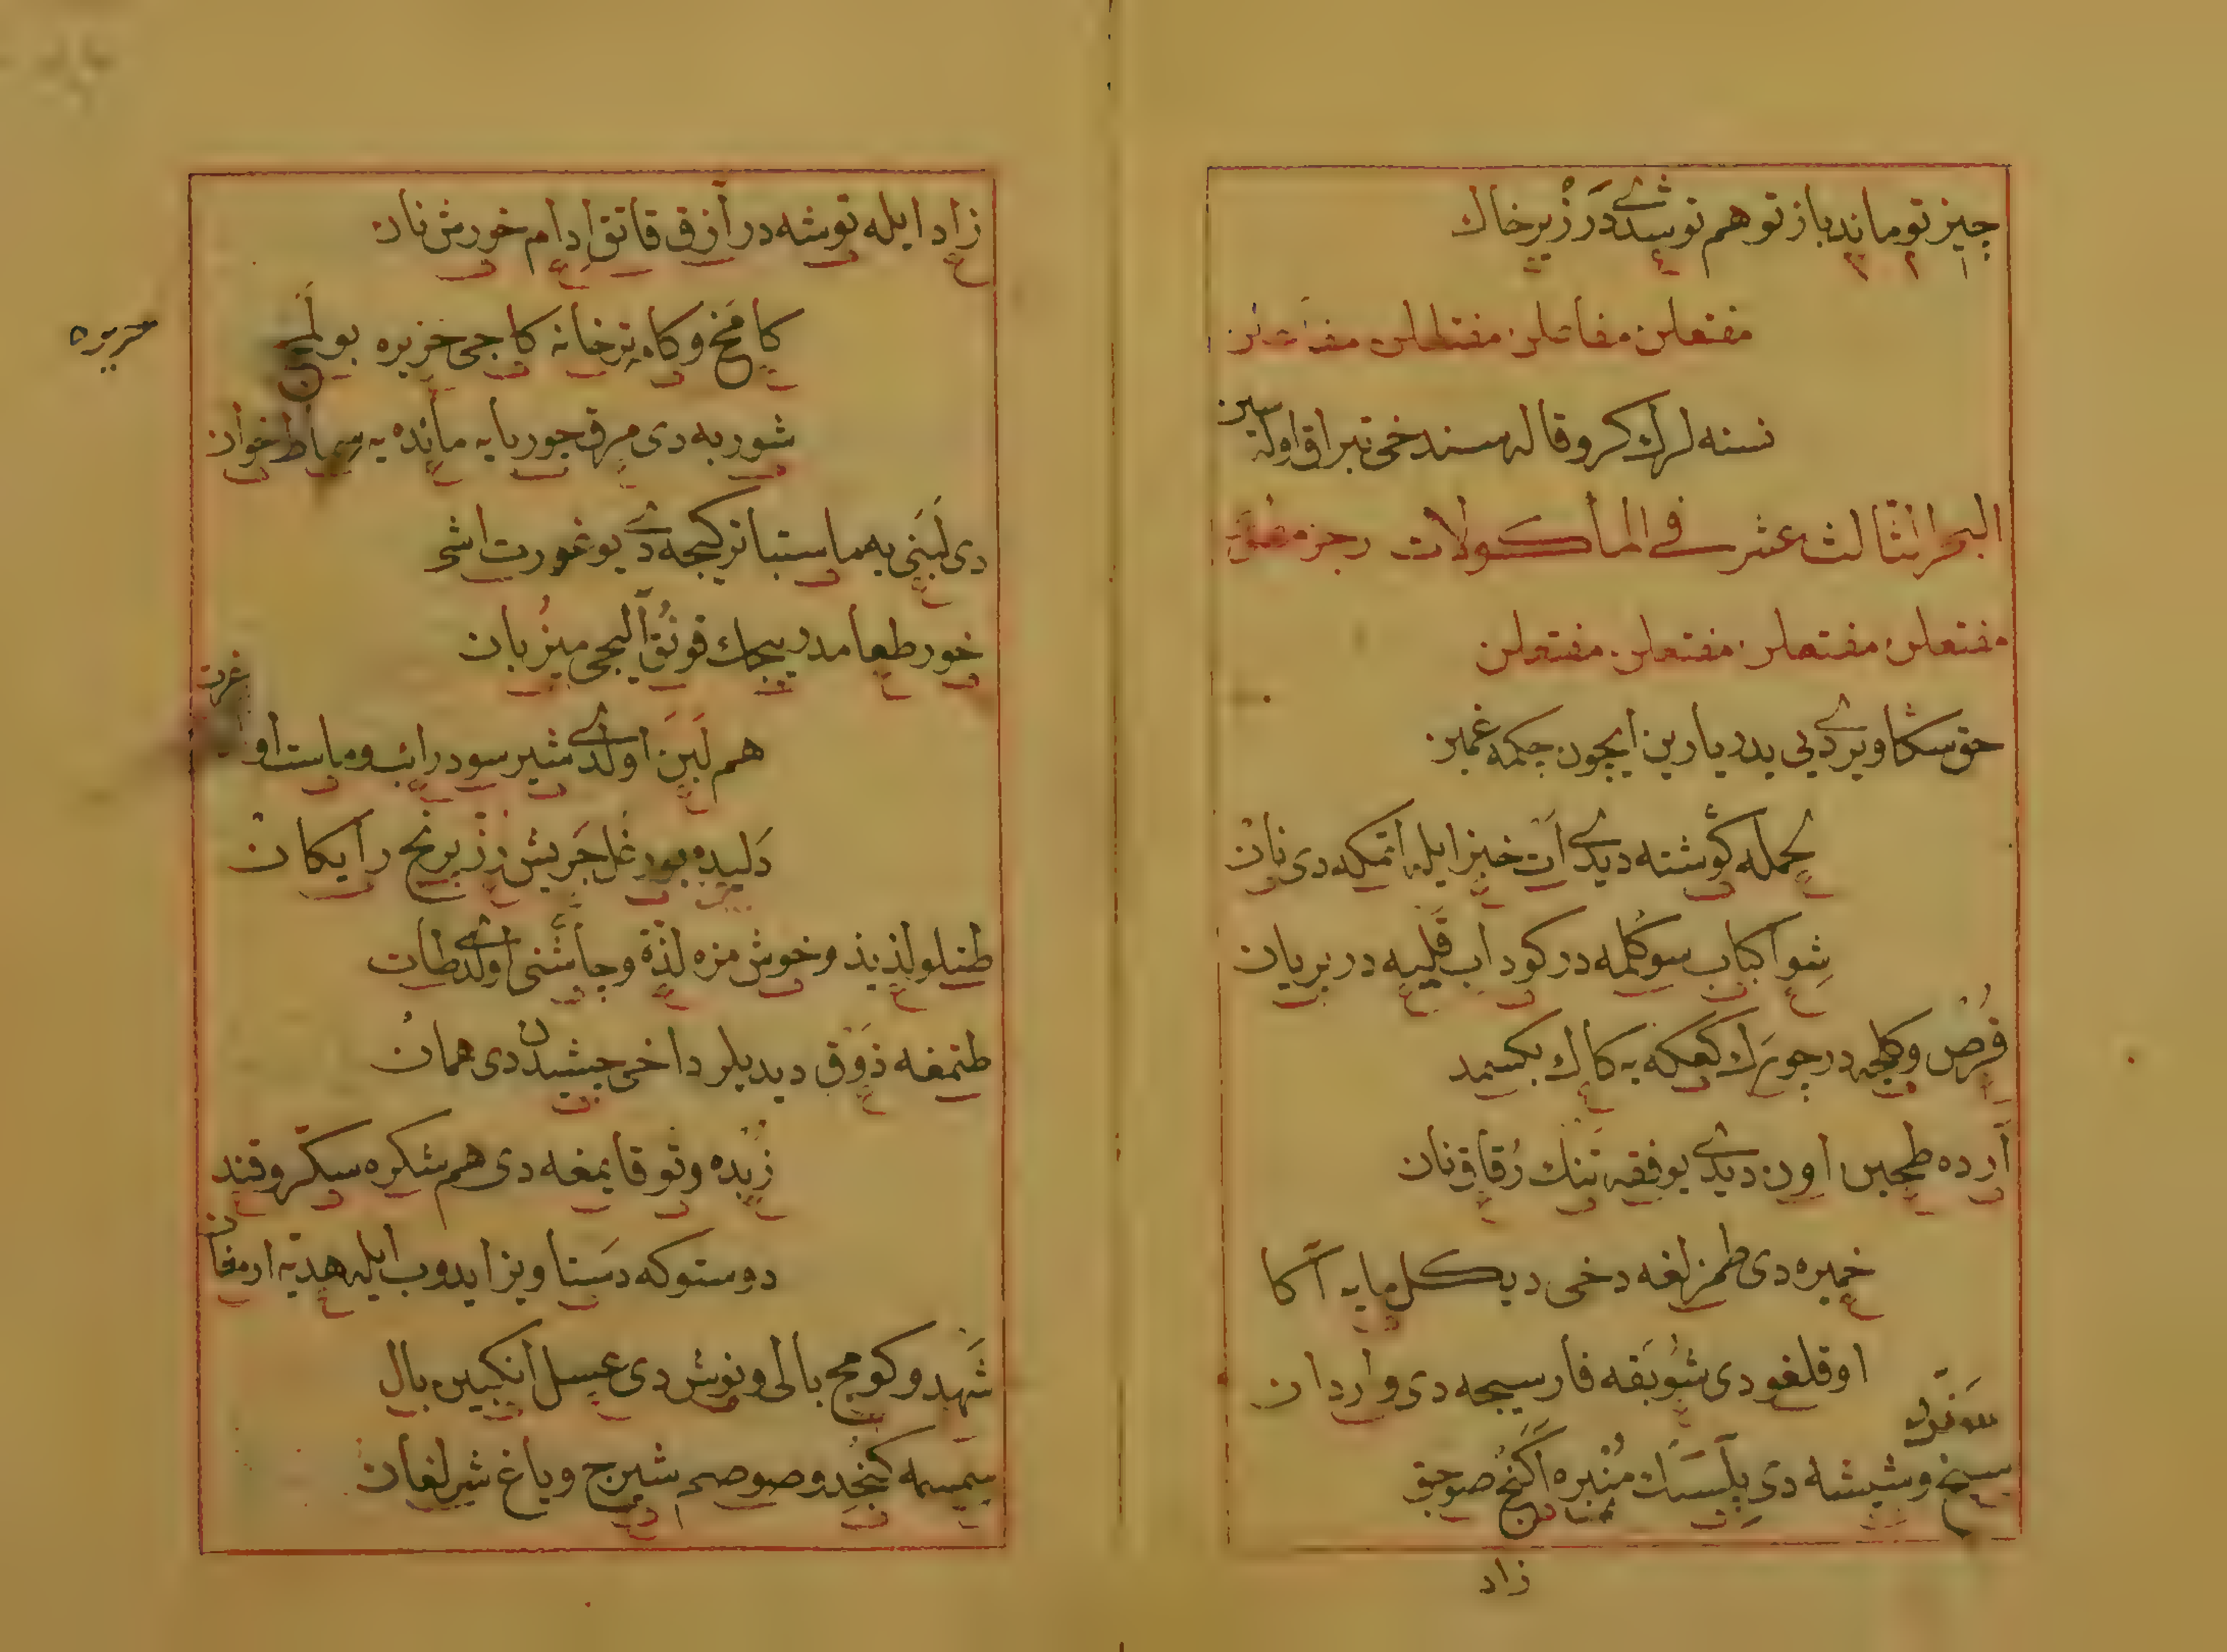 چیز تو ماند باز تو هم تو شدی در زیر خاک
مفتعلن مفاعلن مفتعلن مفاعلن
نسنه لرك كرو قاله سن دخی تبراق اوله سین
البحر الثالث عشر فی المأكولات رجز مطوی
مفتعلن مفتعلن مفتعلن مفتعلن
حق سكا ویردی یی یدر یارین ایچون چكمه غمین
لحمله كوشته دیدی ات خبز ایله اتمكه دی نان
شوا كباب سوكلمه در كوداب قلیه در بریان
قرص و كلیجه در چورك كعكه یه كاك بكسمد
آرده طحین اون دیدی یوفقه تنك رقاق نان
خمیره دی طمزلغه دخی دیكل مایه آكا
اوقلغو دی شوبقه فارسیجه دی واردان
سیخ و شیشه دی پلسك منبره آكنج صوجق
زاد
زاد ایله توشه در آزق قاتق ادام خورش نان
كامخ و كامه ترخانه كاجی خزیره بولمج
حریره
شوربه دی مرق جوربایه مائده یه سماط خوان
دی لبنی یه ماستبا تركیجه دی یوغورت اشی
خور طعامدر ییجك قونق آلیجی میزبان
هم لبن اولدی شیر سود رائب و ماست او
غرت
دلیده بورغل جریش رز برنج رایكان
طتلو لذیذ و خوش مزه لذة و چاشنی اولدی طات
طتمغه ذوق دیدیلر داخی چشیدن دی همان
زبده و ثو قایمغه دی هم شكره سكر و قند
دوستوكه دستاویز ایدوب ایله هدیه ارمغان
شهد و كومج بالی و نوش دی عسل انكبین بال
سمسمه كنجد و صوصم شیرج و یاغ شیرلغان